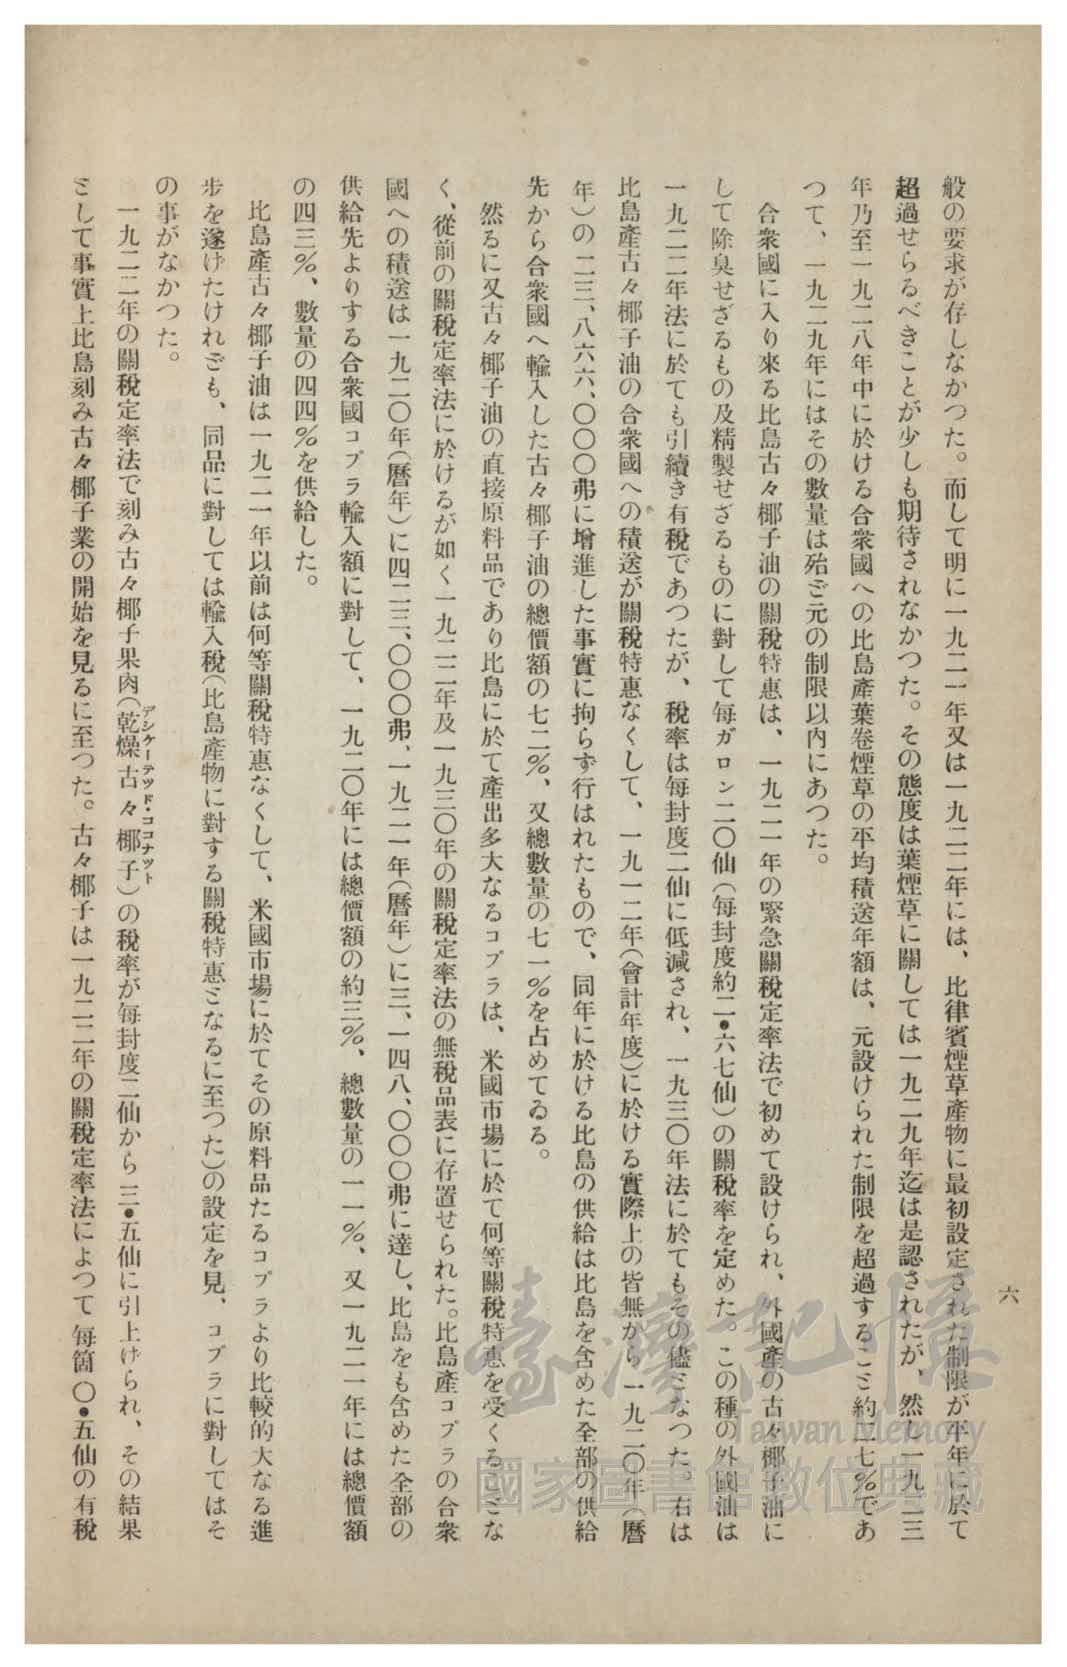 六
般の要求が存しなかつた。而して明に一九二一年又は一九二二年には、比律賓煙草產物に最初設定された制限が平年に於て
超過せらるべきことが少しも期待されなかつた。その態度は葉煙草に關しては一九二九年迄は是認されたが、然し一九二三
年乃至一九二八年中に於ける合衆國への比島產葉卷煙草の平均積送年額は、元設けられた制限を超過するこミ約二七％であ
つて、一九二九年にはその數量は殆ど元の制限以内にあつた。
合衆國に入り來る比島古々椰子油の關稅特惠は、一九二一年の緊急關稅定率法で初めて設けられ、外國產の古々椰子油に
して除臭せざるもの及精製せざるものに對して每ガロン二〇仙（每封度約二•六七仙）の關稅率を定めた。この種の外國油は
一九二二年法に於ても引續き有稅であつたが、稅率は每封度二仙に低減され、一九三〇年法に於てもその儘ミなつた。右は
比島產古々椰子油の合衆國への積送が關稅特惠なくして、一九一二年（會計年度）に於ける實際上の皆無から一九二〇年（曆
年）の二三、八六六、〇〇〇弗に增進した事實に拘らず行はれたもので、同年に於ける比島の供給は比島を含めた全部の供給
先から合衆國へ輸入した古々椰子油の總價額の七二％、又總數量の七一％を占めてゐる。
然るに又古々椰子油の直接原料品であり比島に於て產出多大なるコプラは、米國市場に於て何等關稅特惠を受くるこミな
く、從前の關稅定率法に於けるが如く一九二二年及一九三〇年の關稅定率法の無稅品表に存置せられた。比島產コプラの合衆
國への積送は一九二〇年（曆年）に四二三、〇〇〇弗、一九二一年（曆年）に三、一四八、〇〇〇弗に達し、比島をも含めた全部の
供給先よりする合衆國コプラ輸入額に對して、一九二〇年には總價額の約三％、總數量の一一％、又一九二一年には總價額
の四三％、數量の四四％を供給した。
比島產古々椰子油は一九二一年以前は何等關稅特惠なくして、米國市場に於てその原料品たるコプラより比較的大なる進
步を遂げたけれども、同品に對しては輸入稅（比島產物に對する關稅特惠ミなるに至つた）の設定を見、コプラに對してはそ
の事がなかつた。
一九二二年の關稅定率法で刻み古々椰子果肉（乾燥古々椰子）の稅率が每封度二仙から三•五仙に引上げられ、その結果
デシケーテツド・ココナツト
ミして事實上比島刻み古々椰子業の開始を見るに至つた。古々椰子は一九二二年の關稅定率法によつて每箇〇•五仙の有稅
臺灣記憶
Taiwan Memory
國家圖書館數位典藏